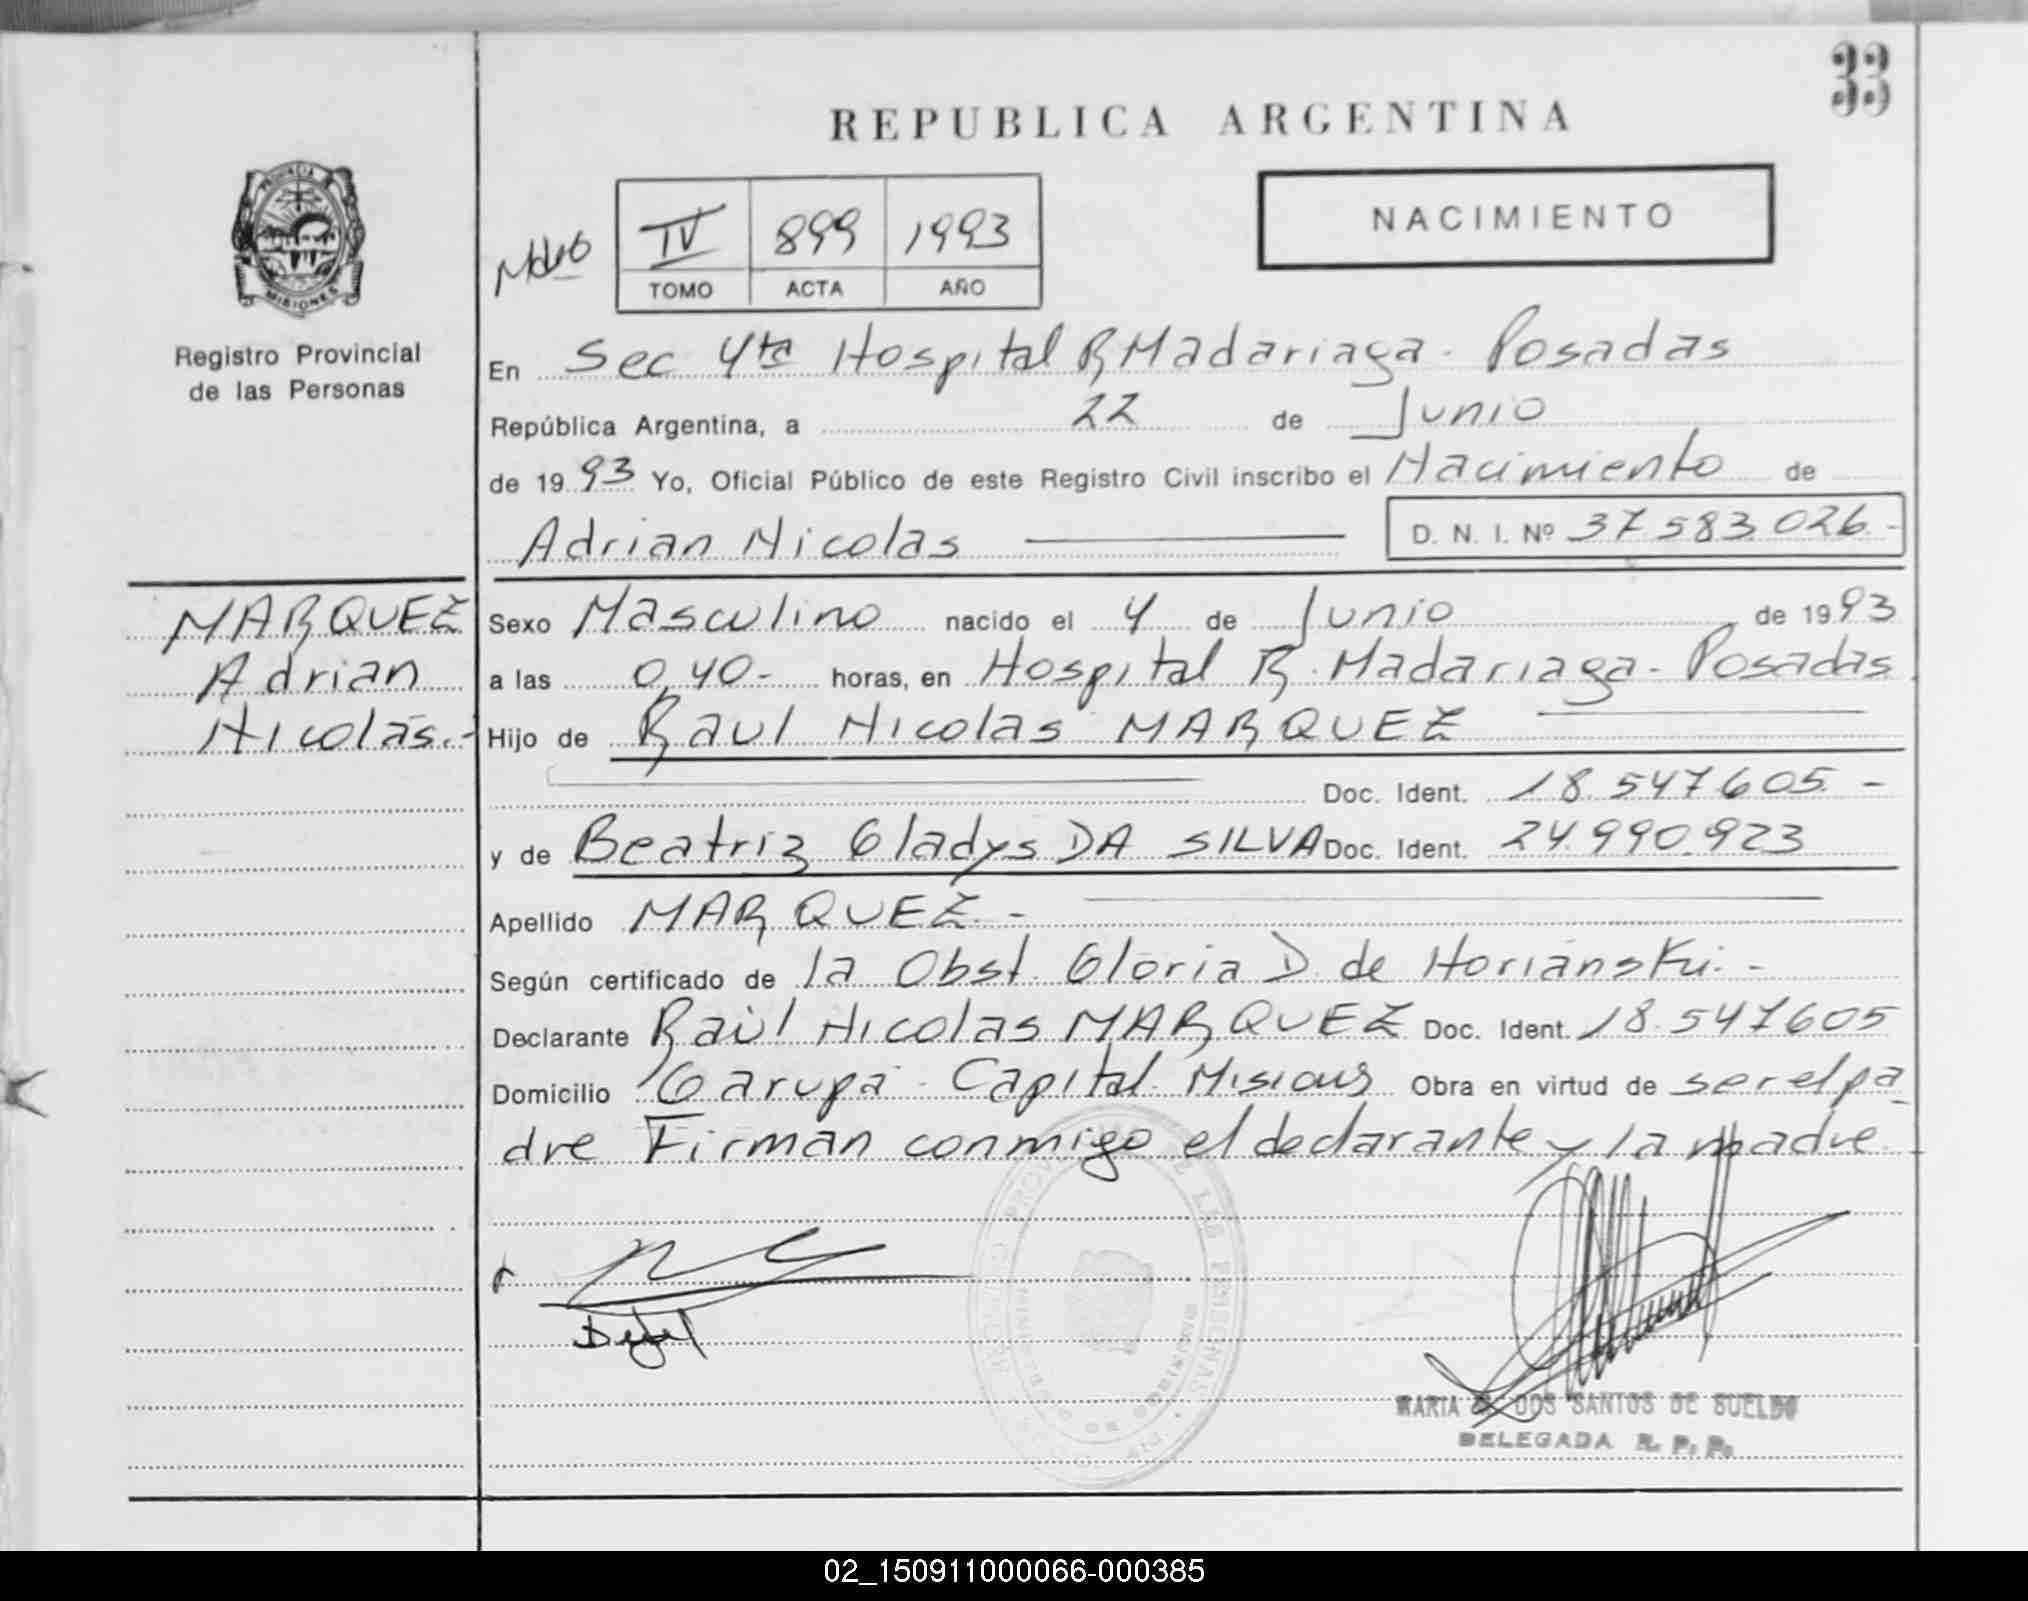 33
REPUBLICA ARGENTINA
NACIMIENTO
PROVINCIA DE
MISIONES
Registro Provincial
de las Personas
IV 899 1993
TOMO ACTA AÑO
En Sec 4ta Hospital R Madariaga - Posadas
República Argentina, a 22 de Junio
de 1993 Yo, Oficial Público de este Registro Civil inscribo el Nacimiento de
Adrian Nicolas D. N. I. Nº 37.583.026.-
MARQUEZ
Adrian
Nicolas.-
Sexo Masculino nacido el 4 de Junio de 1993
a las 0,40- horas, en Hospital R. Madariaga - Posadas
Hijo de Raul Nicolas MARQUEZ
Doc. Ident. 18.547.605.-
y de Beatriz Gladys DA SILVA Doc. Ident. 24.990.923
Apellido MARQUEZ.-
Según certificado de la Obst. Gloria D. de Horianski.-
Declarante Raúl Nicolas MARQUEZ Doc. Ident. 18.547605
Domicilio Garupa - Capital. Misiones Obra en virtud de ser el pa
dre Firman conmigo el declarante y la madre
MARIA DOS SANTOS DE SUELDO
DELEGADA R. P. P.
02_150911000066-000385